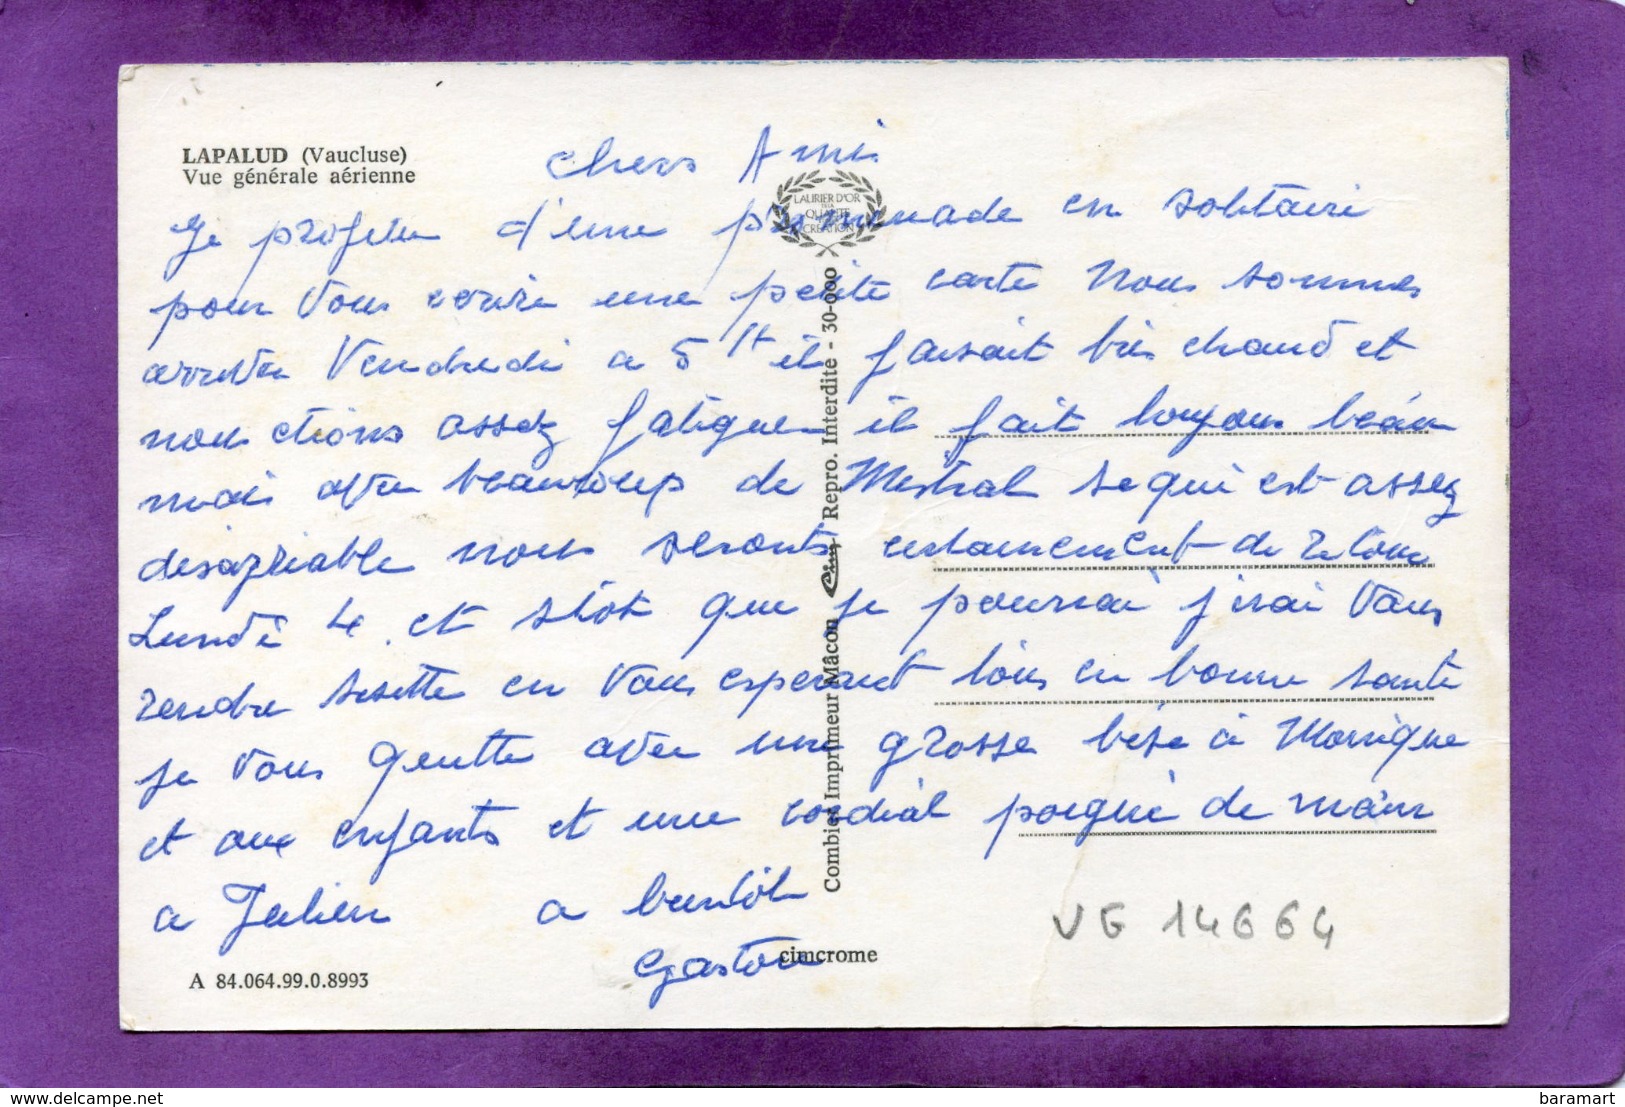 LAPALUD (Vaucluse)
Vue générale aérienne
chers Amis
LAURIER D'OR
DE LA
QUALITÉ
CRÉATION
Je profite d'une promenade en solitaire
pour vous ecrire une petite carte Nous sommes
arrivée Vendredi a 5 H il faisait très chaud et
nous étions assez fatiguer il fait toujours beau
mais avec beaucoup de Mistral se qui est assez
desagreable nous serons certainement de retour
Lundi 4 et sitot que je pourrai j'irai vous
rendre visette en vous esperant tous en bonne sante
je vous quitte avec une grosse bise à Monique
et aux enfants et une cordial poignè de main
a Julien a bientôt
Gaston
Combier Imprimeur Mâcon Cim Repro. Interdite - 30-000
cimcrome
A 84.064.99.0.8993
VG 14664
delcampe.net
baramart